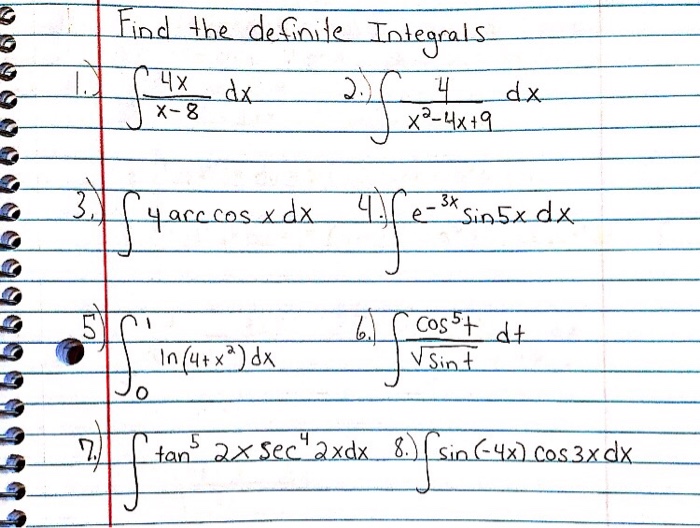 Find the definite Integrals
1.) ∫ 4x/(x-8) dx 2.) ∫ 4/(x²-4x+9) dx
3.) ∫ 4 arccos x dx 4.) ∫ e^(-3x) sin5x dx
5) ∫₀¹ ln(4+x²) dx 6.) ∫ cos⁵t/√sin t dt
7.) ∫ tan⁵ 2x sec⁴ 2x dx 8.) ∫ sin(-4x) cos 3x dx